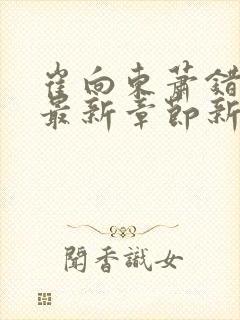 崔向東蕭錯
最新章節新
聞香識女